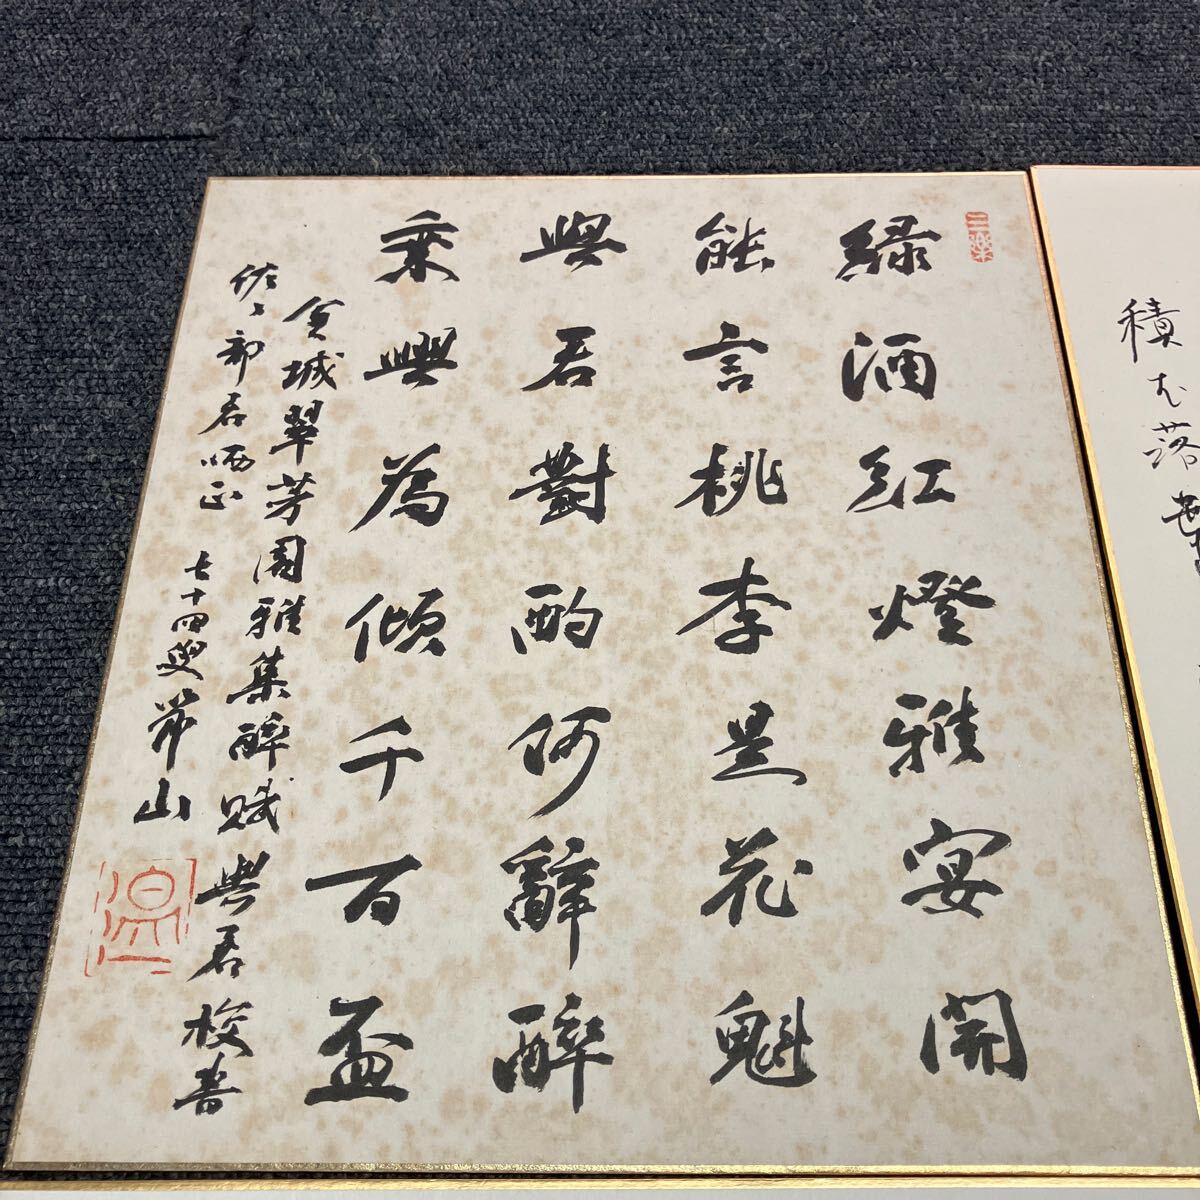 緑酒紅燈雅宴開
能言桃李是花魁
與君對酌何辭醉
乗興為傾千百盃
金城翠芳園雅集醉賦與君校書
佐々部君哂正
七十四叟芾山
三樂
積
落